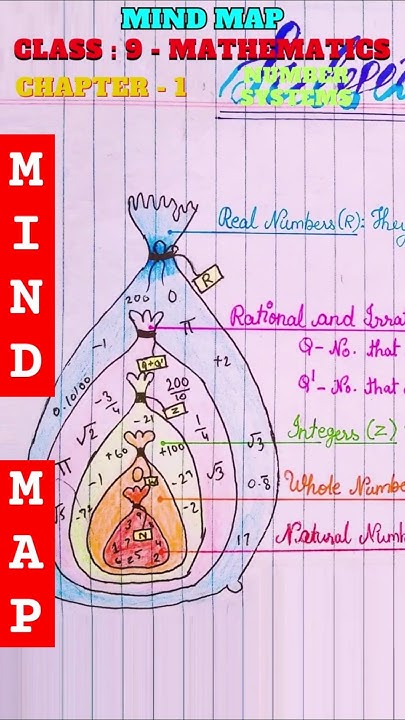 MIND MAP
CLASS : 9 - MATHEMATICS
CHAPTER - 1
NUMBER
SYSTEMS
MIND
MAP
Real Numbers (R): They
R
200 0
π
-1
+2
0.10100
Rational and Irra
Q - No. that
Q' - No. that
Q+Q'
-3/4
200/10
Z
√2
-21
1/4
Integers (Z)
+60
+100
√3
π
-1
0
-27
√3
0.8
Whole Numbe
√5
-77
-2
N
17
Natural Numb